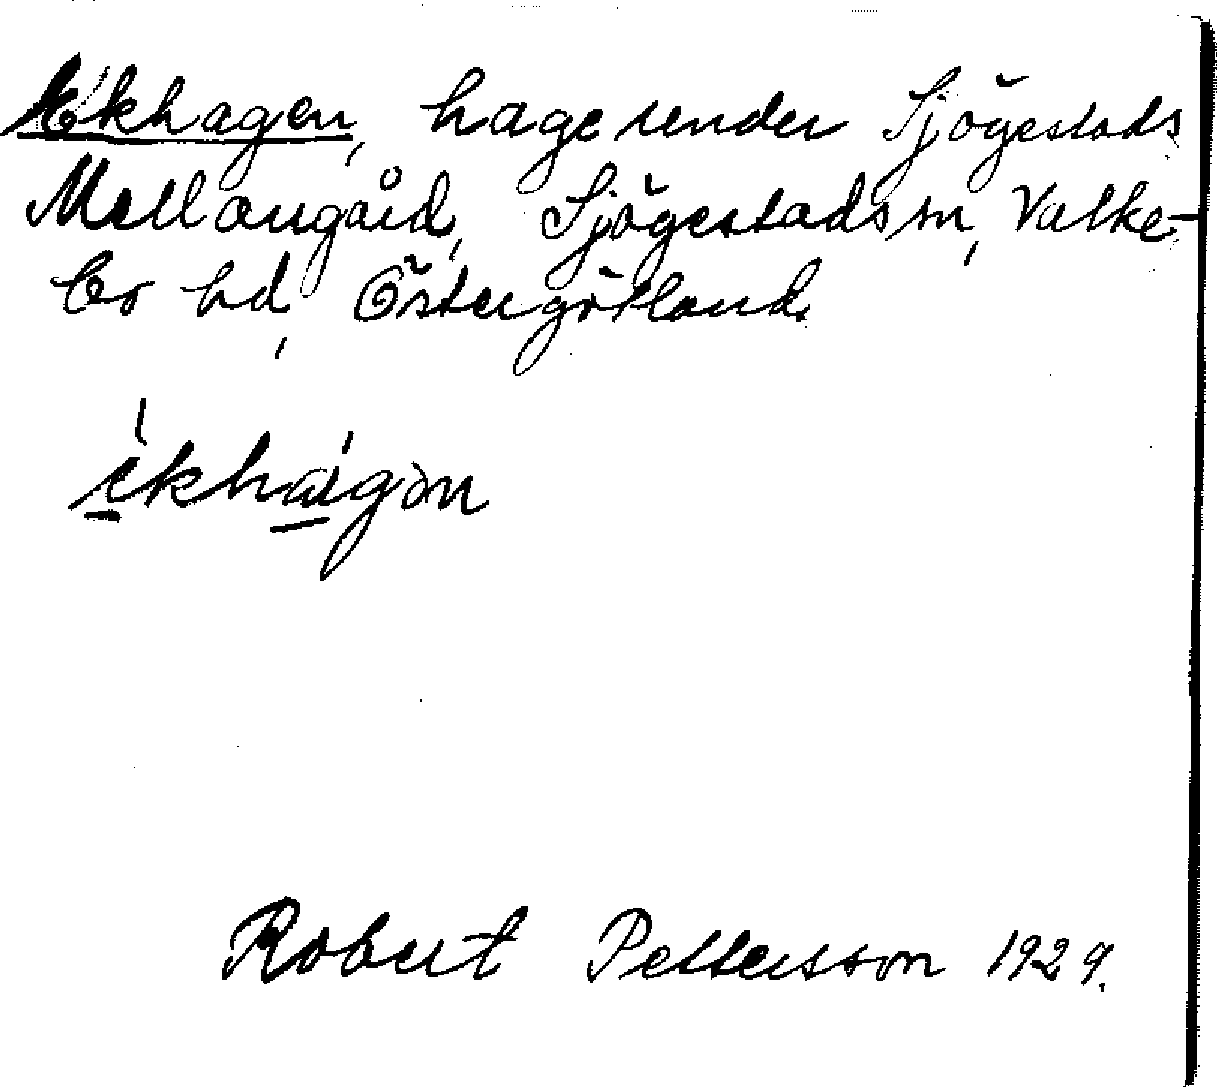 Ekhagen, hage under Sjögestads
Mellangård, Sjögestads sn, Valke-
bo hd, Östergötland.
èkhágən
Robert Pettersson 1929.